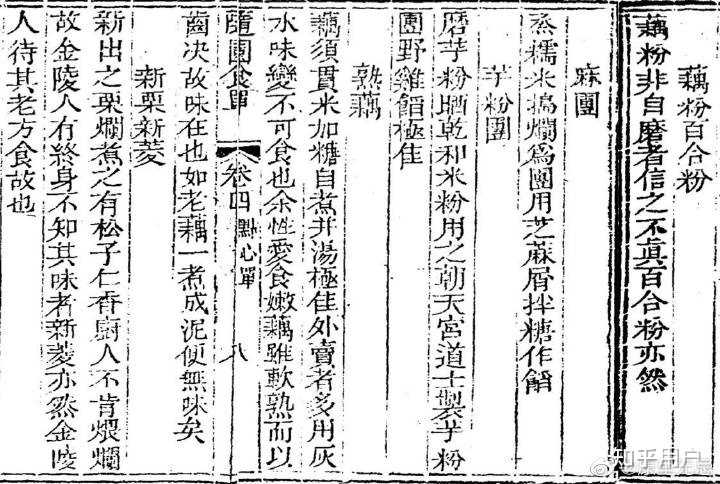 藕粉百合粉
藕粉非自磨者信之不眞百合粉亦然
麻團
蒸糯米搗爛爲團用芝蔴屑拌糖作餡
芋粉團
磨芋粉晒乾和米粉用之朝天宮道士製芋粉
團野雞餡極佳
熟藕
藕須貫米加糖自煮并湯極佳外賣者多用灰
水味變不可食也余性愛食嫩藕雖軟熟而以
隨園食單 卷四 點心單 八
齒决故味在也如老藕一煮成泥便無味矣
新栗新菱
新出之栗爛煮之有松子仁香廚人不肯煨爛
故金陵人有終身不知其味者新菱亦然金陵
人待其老方食故也
知乎用户